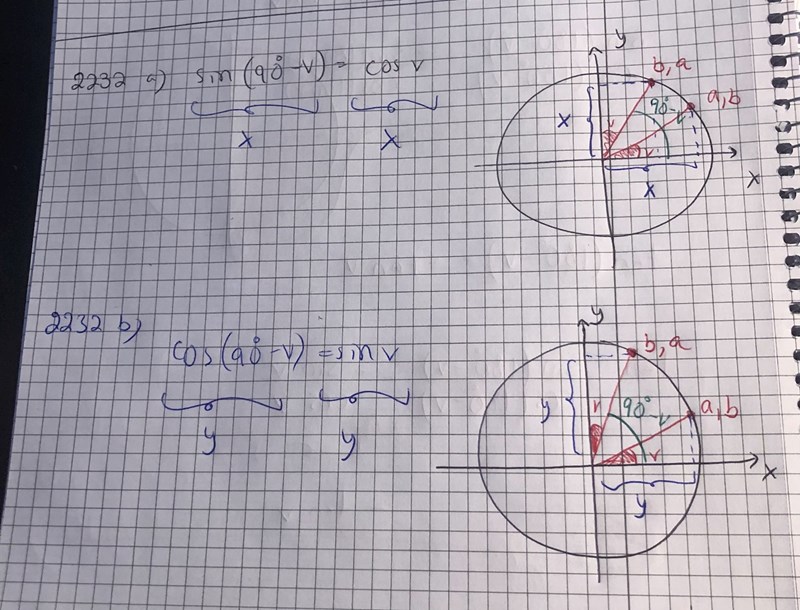 2232 a) sin (90°-v) = cos v
x x
y
b, a
a, b
90°-v
v
v
x
x
x
2232 b) cos(90°-v) = sin v
y y
y
b, a
a, b
90°-v
v
v
y
y
x